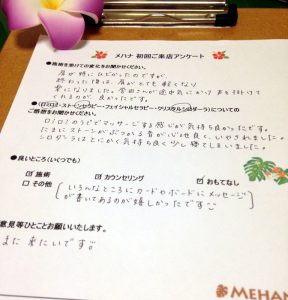 メハナ 初回ご来店アンケート
●施術を受けての変化をお聞かせください。
肩が特にひどかったのですが、
終わった後は、肩がとても軽くなり
楽になりました。宮田さんが途中気にかけ声を掛けて
くれるのが、良かったです。
●(ロミロミ・ストーンセラピー・フェイシャルセラピー・クリスタルシロダーラ) についての
ご感想をお聞かせください。
ロミロミのリズミでマッサージする感じが気持ち良かったです。
たまにストーンがぶつかる音が心地良く、いやされました。
シロダーラはとにかく気持ち良く少し寝てしまいました。
●良いところ(いくつでも)
☑ 施術 ☑ カウンセリング ☑ おもてなし
☐ その他
いろんなところにカードやボードにメッセージ
が書いてあるのが嬉しかったです
意見等ひとことお願いいたします。
また来たいです。
MEHAN